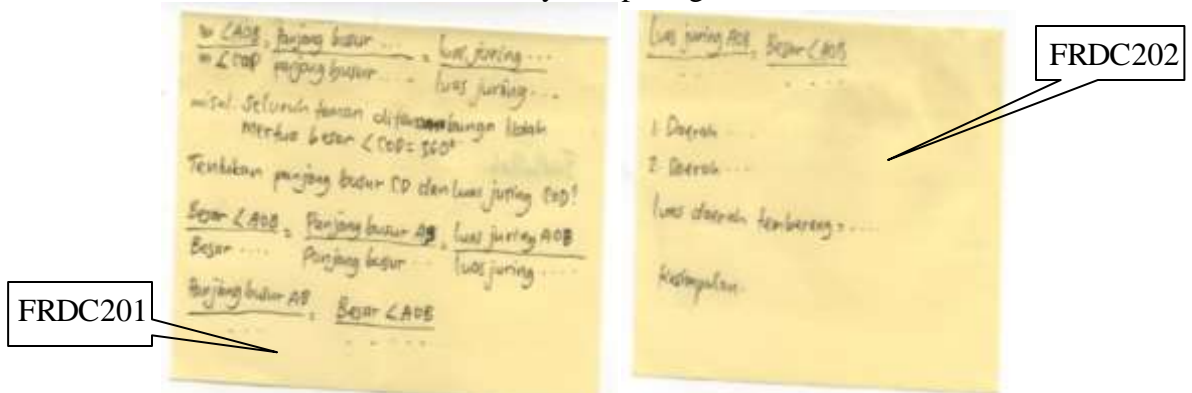 ∠AOB = Panjang busur ... = Luas juring ...
∠COD panjang busur ... luas juring ...
misal seluruh taman
besar ∠COD = 360°
Tentukan panjang busur CD dan luas juring COD!
Besar ∠AOB = Panjang busur AB = luas juring AOB
Besar .... Panjang busur ... luas juring ....
Panjang busur AB = Besar ∠AOB
.... .....
FRDC201
Luas juring AOB = Besar ∠AOB
.... ....
1. Daerah ...
2. Daerah ...
luas daerah tembereng = ....
Kesimpulan.
FRDC202